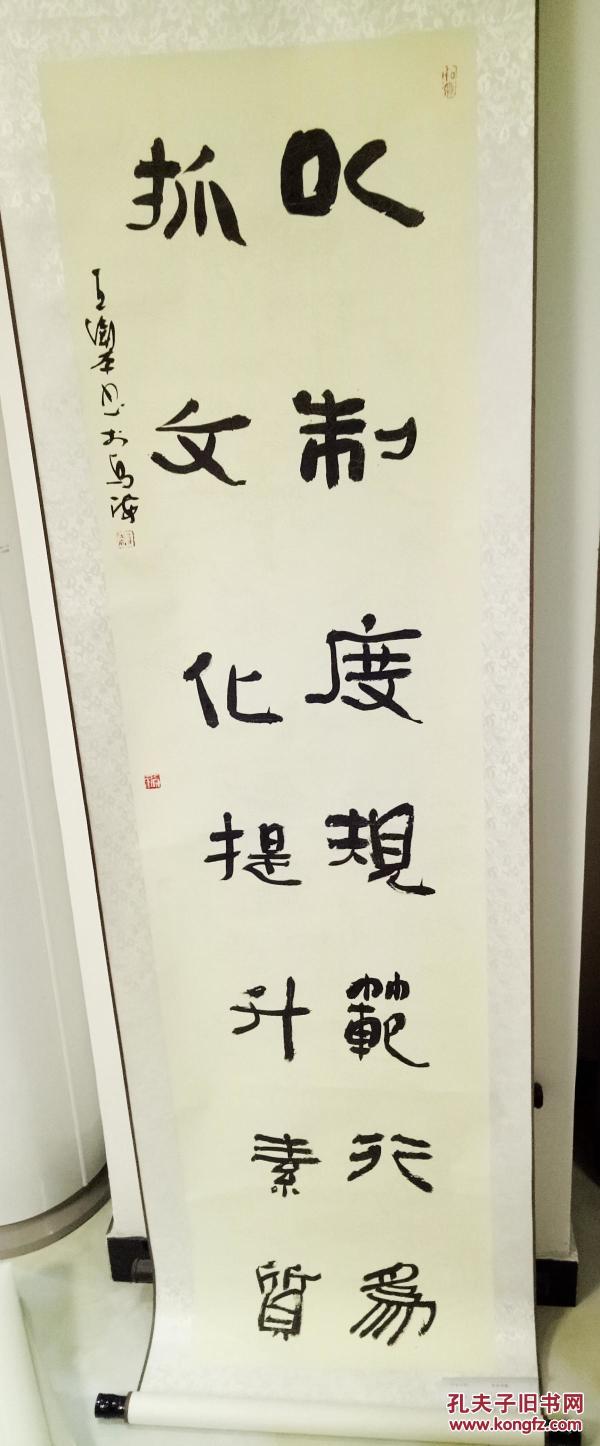 以制度規範行為
抓文化提升素質
王 於烏海
孔夫子旧书网
www.kongfz.com